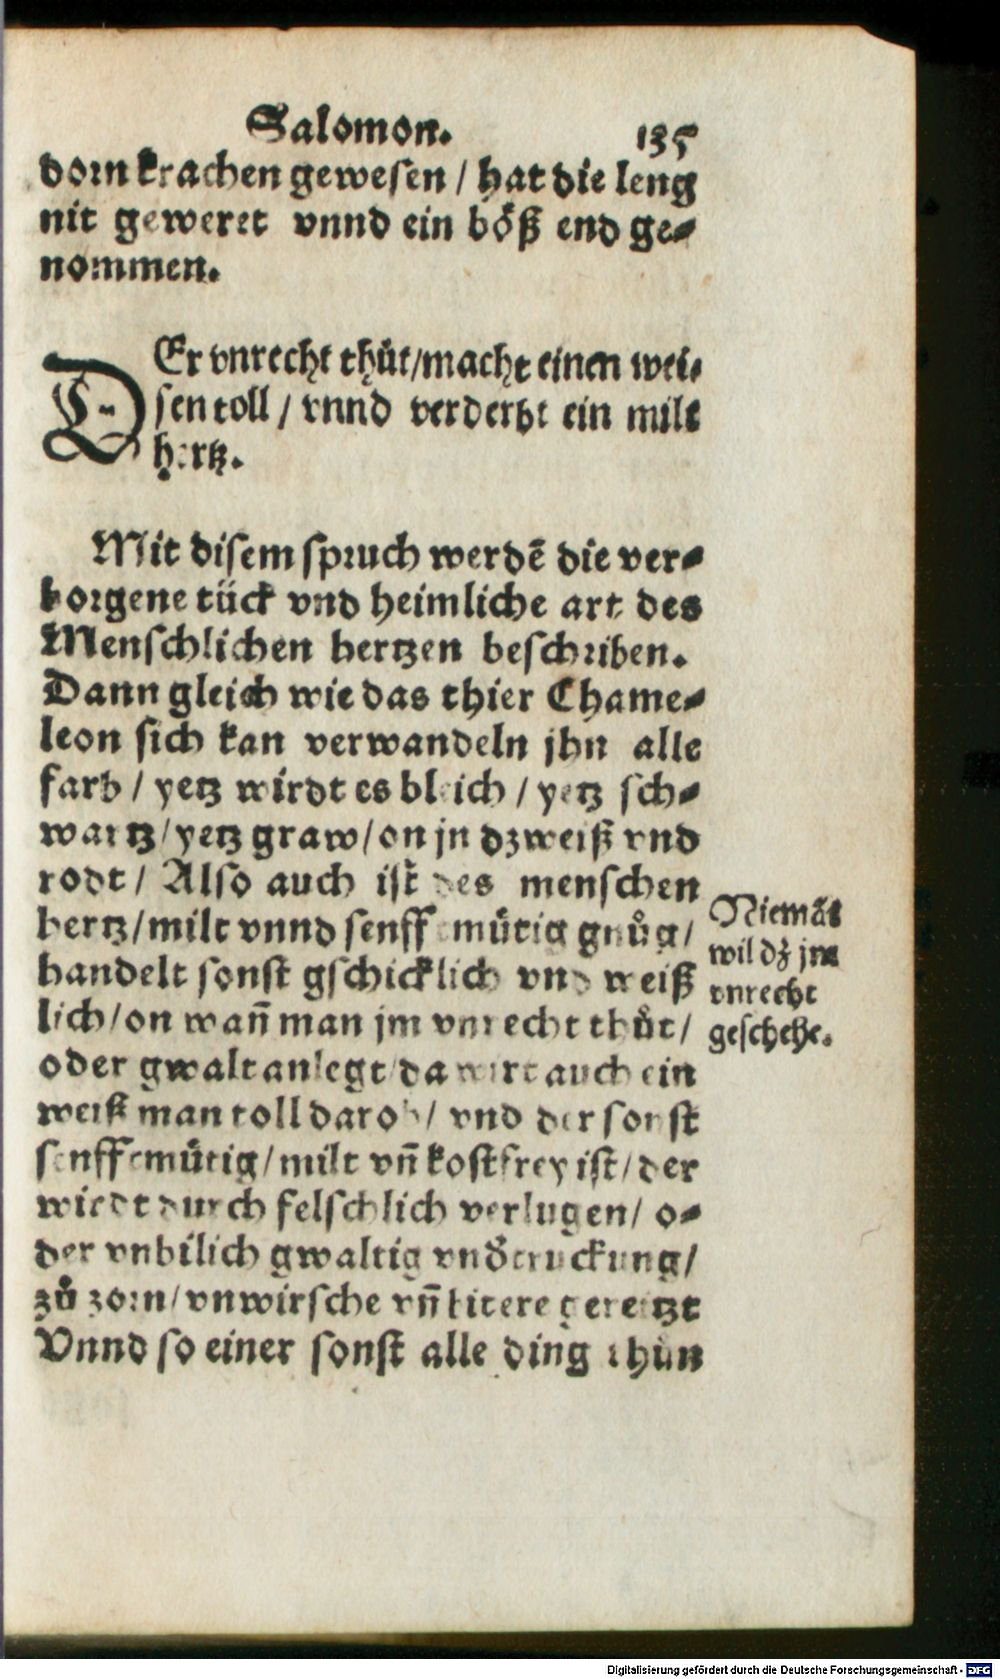 Salomon. 135
dorn krachen gewesen / hat die leng
nit geweret vnnd ein böß end ge⸗
nommen.
DEr vnrecht thůt/macht einen wei⸗
sen toll / vnnd verderbt ein milt
hertz.
Mit disem spruch werdē die ver⸗
borgene tück vnd heimliche art des
Menschlichen hertzen beschriben.
Dann gleich wie das thier Chame⸗
leon sich kan verwandeln jhn alle
farb / yetz wirdt es bleich / yetz sch⸗
wartz/yetz graw/on jn dz weiß vnd
rodt / Also auch ist des menschen
hertz/milt vnnd senfftmütig gnůg/
handelt sonst gschicklich vnd weiß
lich/on wañ man jm vnrecht thůt/
oder gwalt anlegt/da wirt auch ein
weiß man toll darob/ vnd der sonst
senfftmütig/milt vñ kostfrey ist/der
wirdt durch felschlich verlugen/ o⸗
der vnbilich gwaltig vnd̕truckung/
zů zorn/vnwirsche vñ bitere gereitzt
Vnnd so einer sonst alle ding thůn
Niemāt
wil dz jm
vnrecht
geschehe.
Digitalisierung gefördert durch die Deutsche Forschungsgemeinschaft - DFG